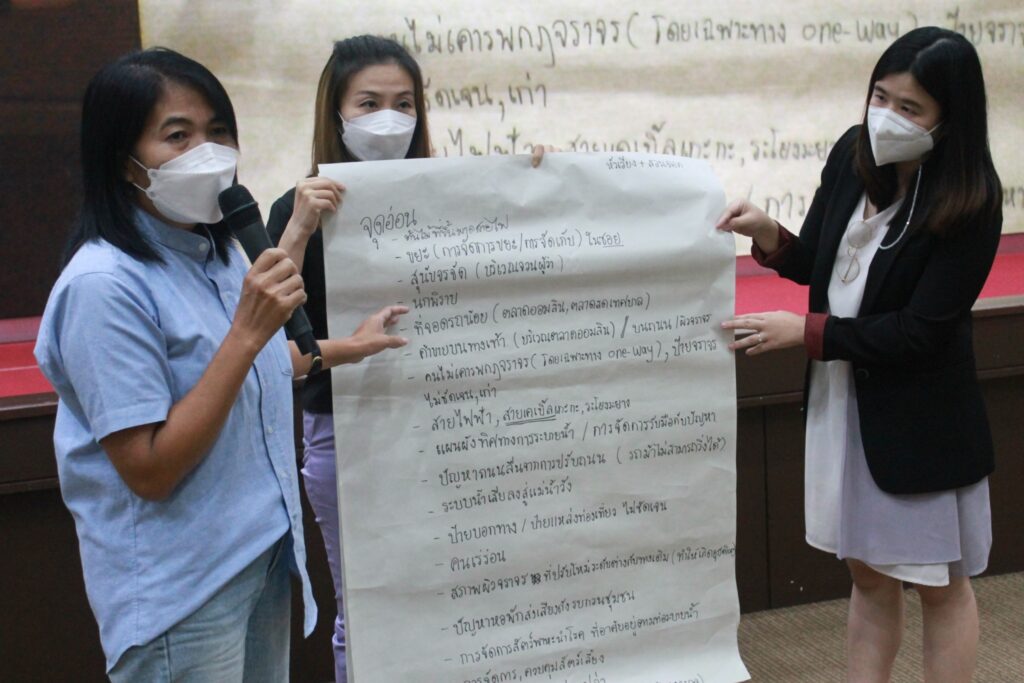 คนไม่เคารพกฎจราจร ( โดยเฉพาะทาง one-way ) , ป้ายจรา
ชัดเจน, เก่า
สายไฟฟ้า, สายเคเบิ้ลเกะกะ, ระโยงมะยาง
/ การ
หัวเรื่อง +
จุดอ่อน
- ขยะ ( การจัดการขยะ / การจัดเก็บ ) ในซอย
- สุนัขจรจัด ( บริเวณจวนผู้ว่า )
- นกพิราบ
- ที่จอดรถน้อย ( ตลาดออมสิน, ตลาดสดเทศบาล )
- ค้าขายบนทางเท้า ( บริเวณตลาดออมสิน ) / บนถนน / ผิวจราจร
- คนไม่เคารพกฎจราจร ( โดยเฉพาะทาง one-way ) , ป้ายจราจร
ไม่ชัดเจน, เก่า
- สายไฟฟ้า, สายเคเบิ้ลเกะกะ, ระโยงมะยาง
- แผนผังทิศทางการระบายน้ำ / การจัดการรับมือกับปัญหา
- ปัญหาถนนลื่นจากการปรับถนน ( รถม้าไม่สามารถวิ่งได้ )
- ระบบน้ำเสียลงสู่แม่น้ำวัง
- ป้ายบอกทาง / ป้ายแหล่งท่องเที่ยว ไม่ชัดเจน
- คนเร่ร่อน
- สภาพผิวจราจร ที่ปรับใหม่ระดับต่างกับทางเดิม ( ทำให้เกิดอุบัติเหตุ
- ปัญหาหอพักส่งเสียงดังรบกวนชุมชน
- การจัดการสัตว์พาหะนำโรค ที่อาศัยอยู่ตามท่อระบายน้ำ
- การจัดการ, ควบคุมสัตว์เลี้ยง